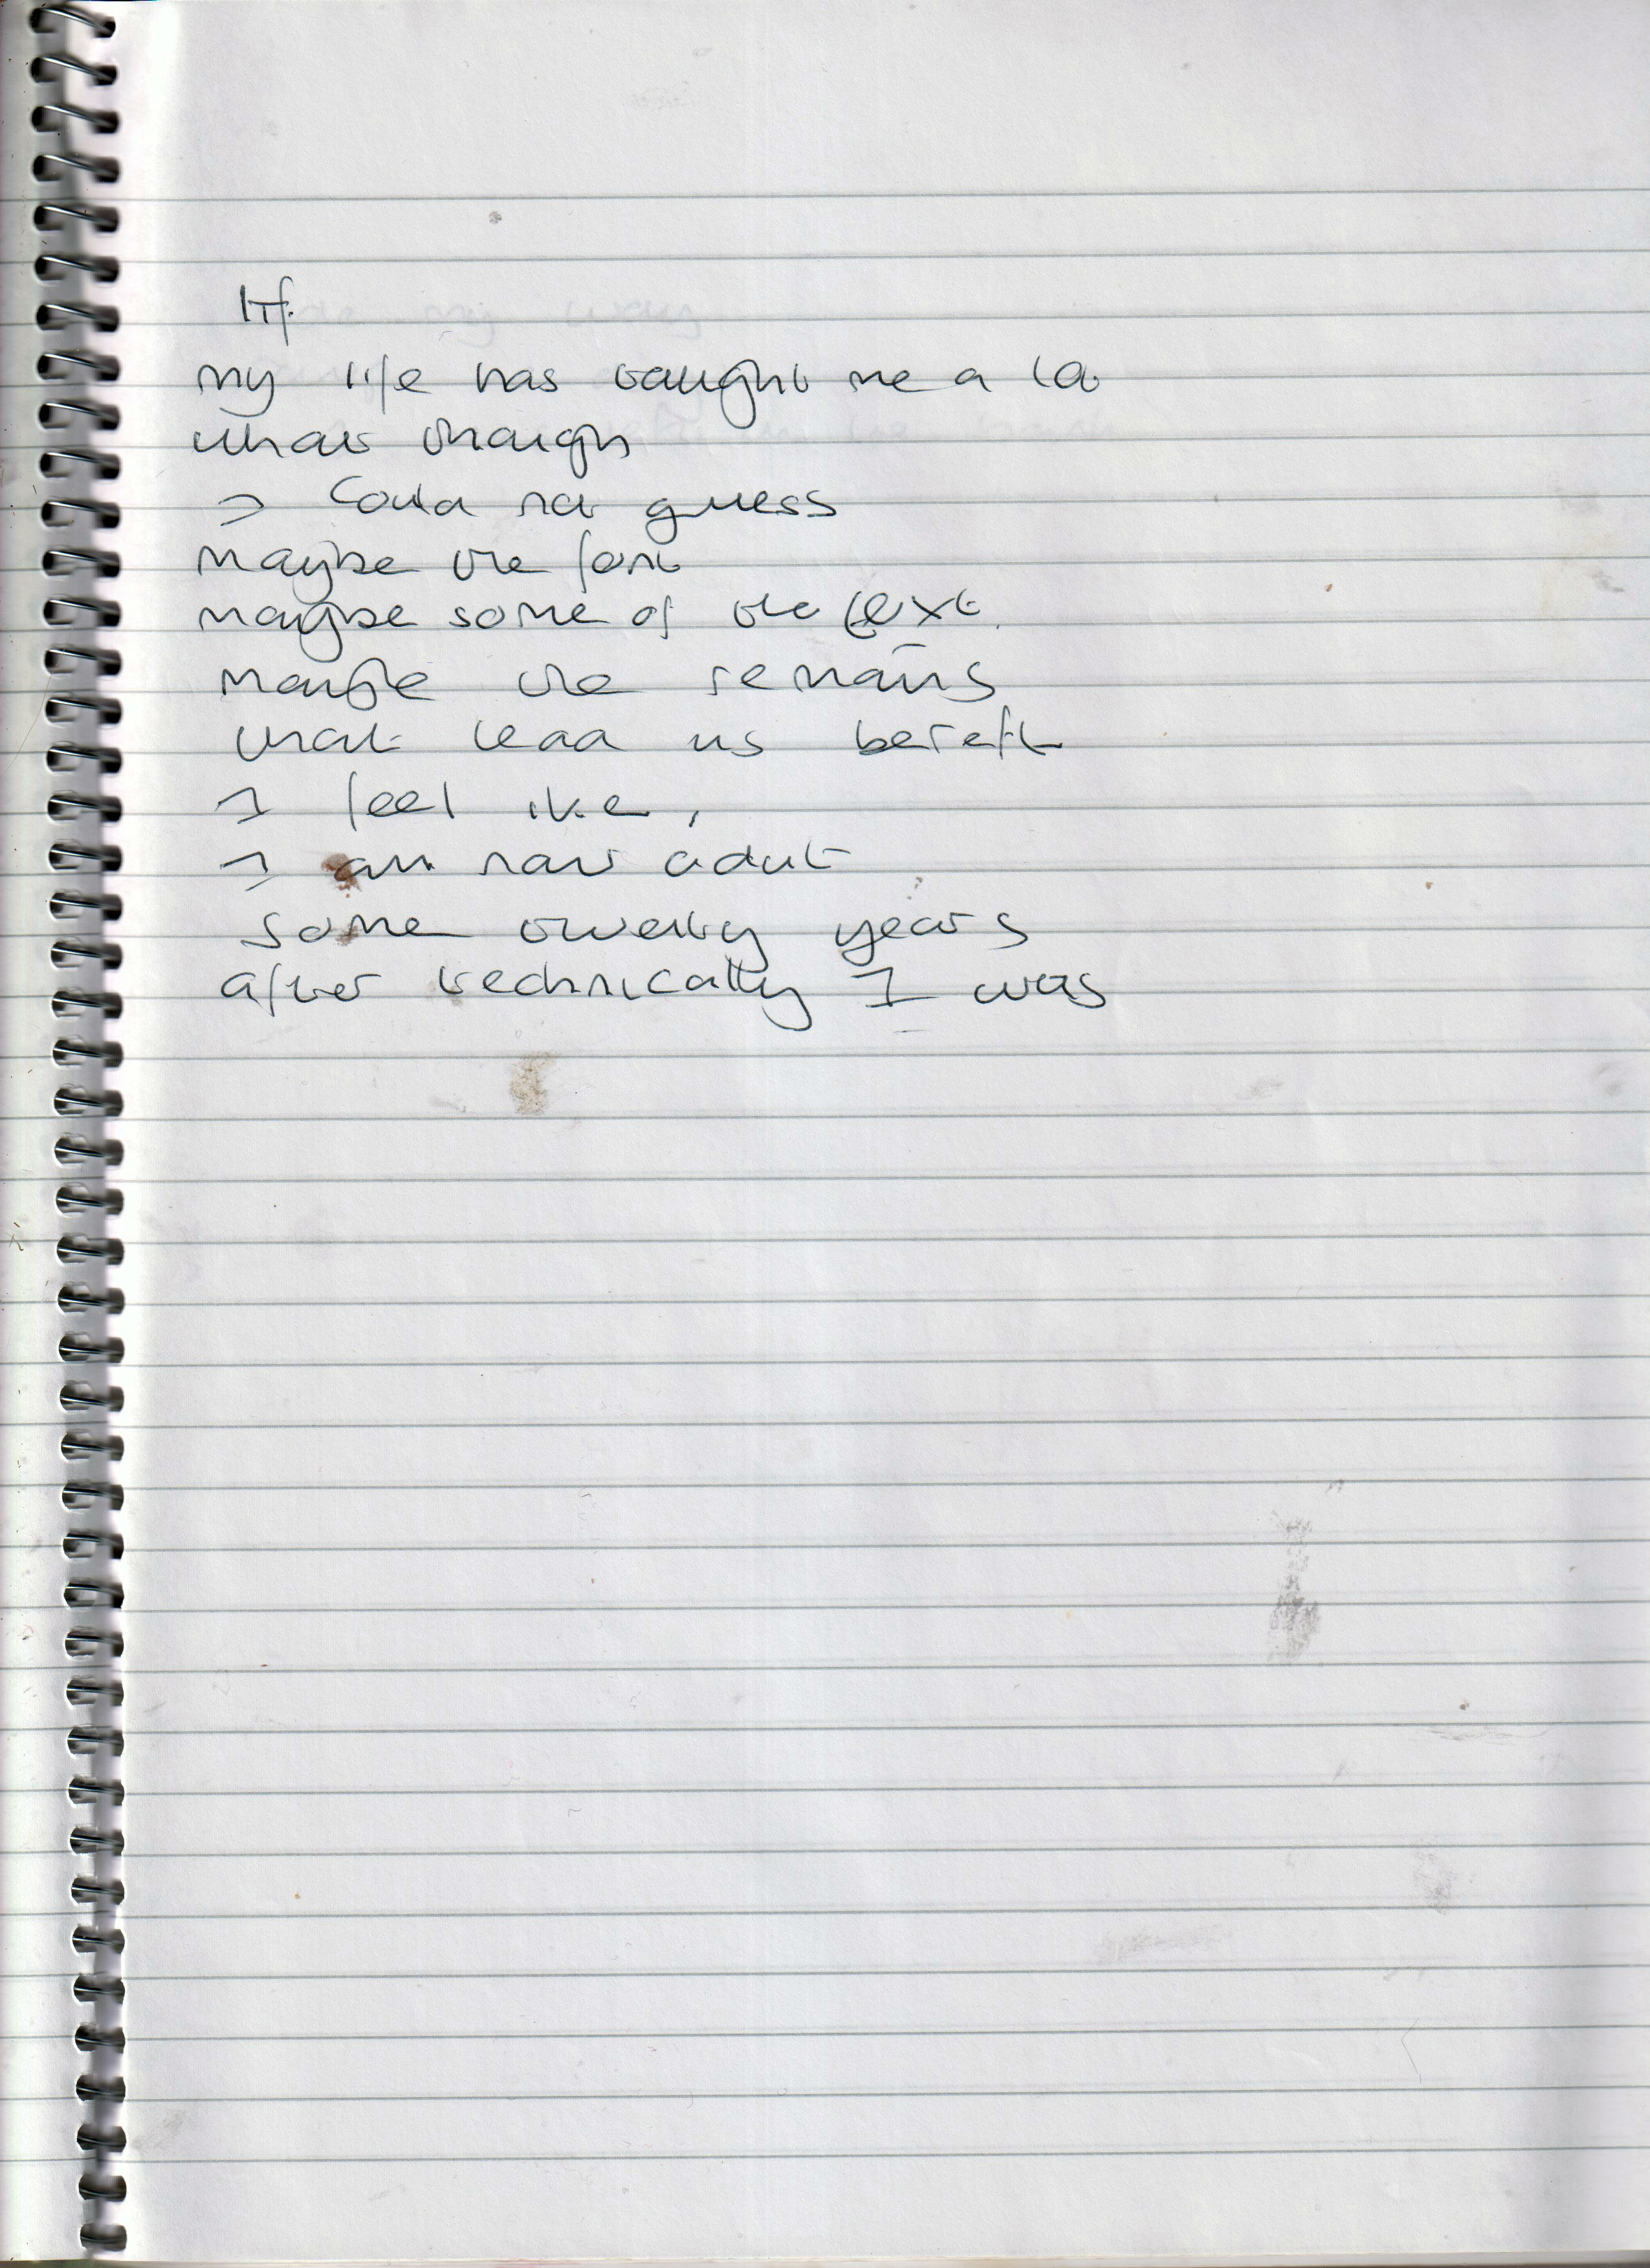 my life has taught me a lot
what though
I could not guess
maybe the font
maybe some of the text.
maybe the remains
that lead us bereft
I feel like,
I am now adult
some twenty years
after technically I was